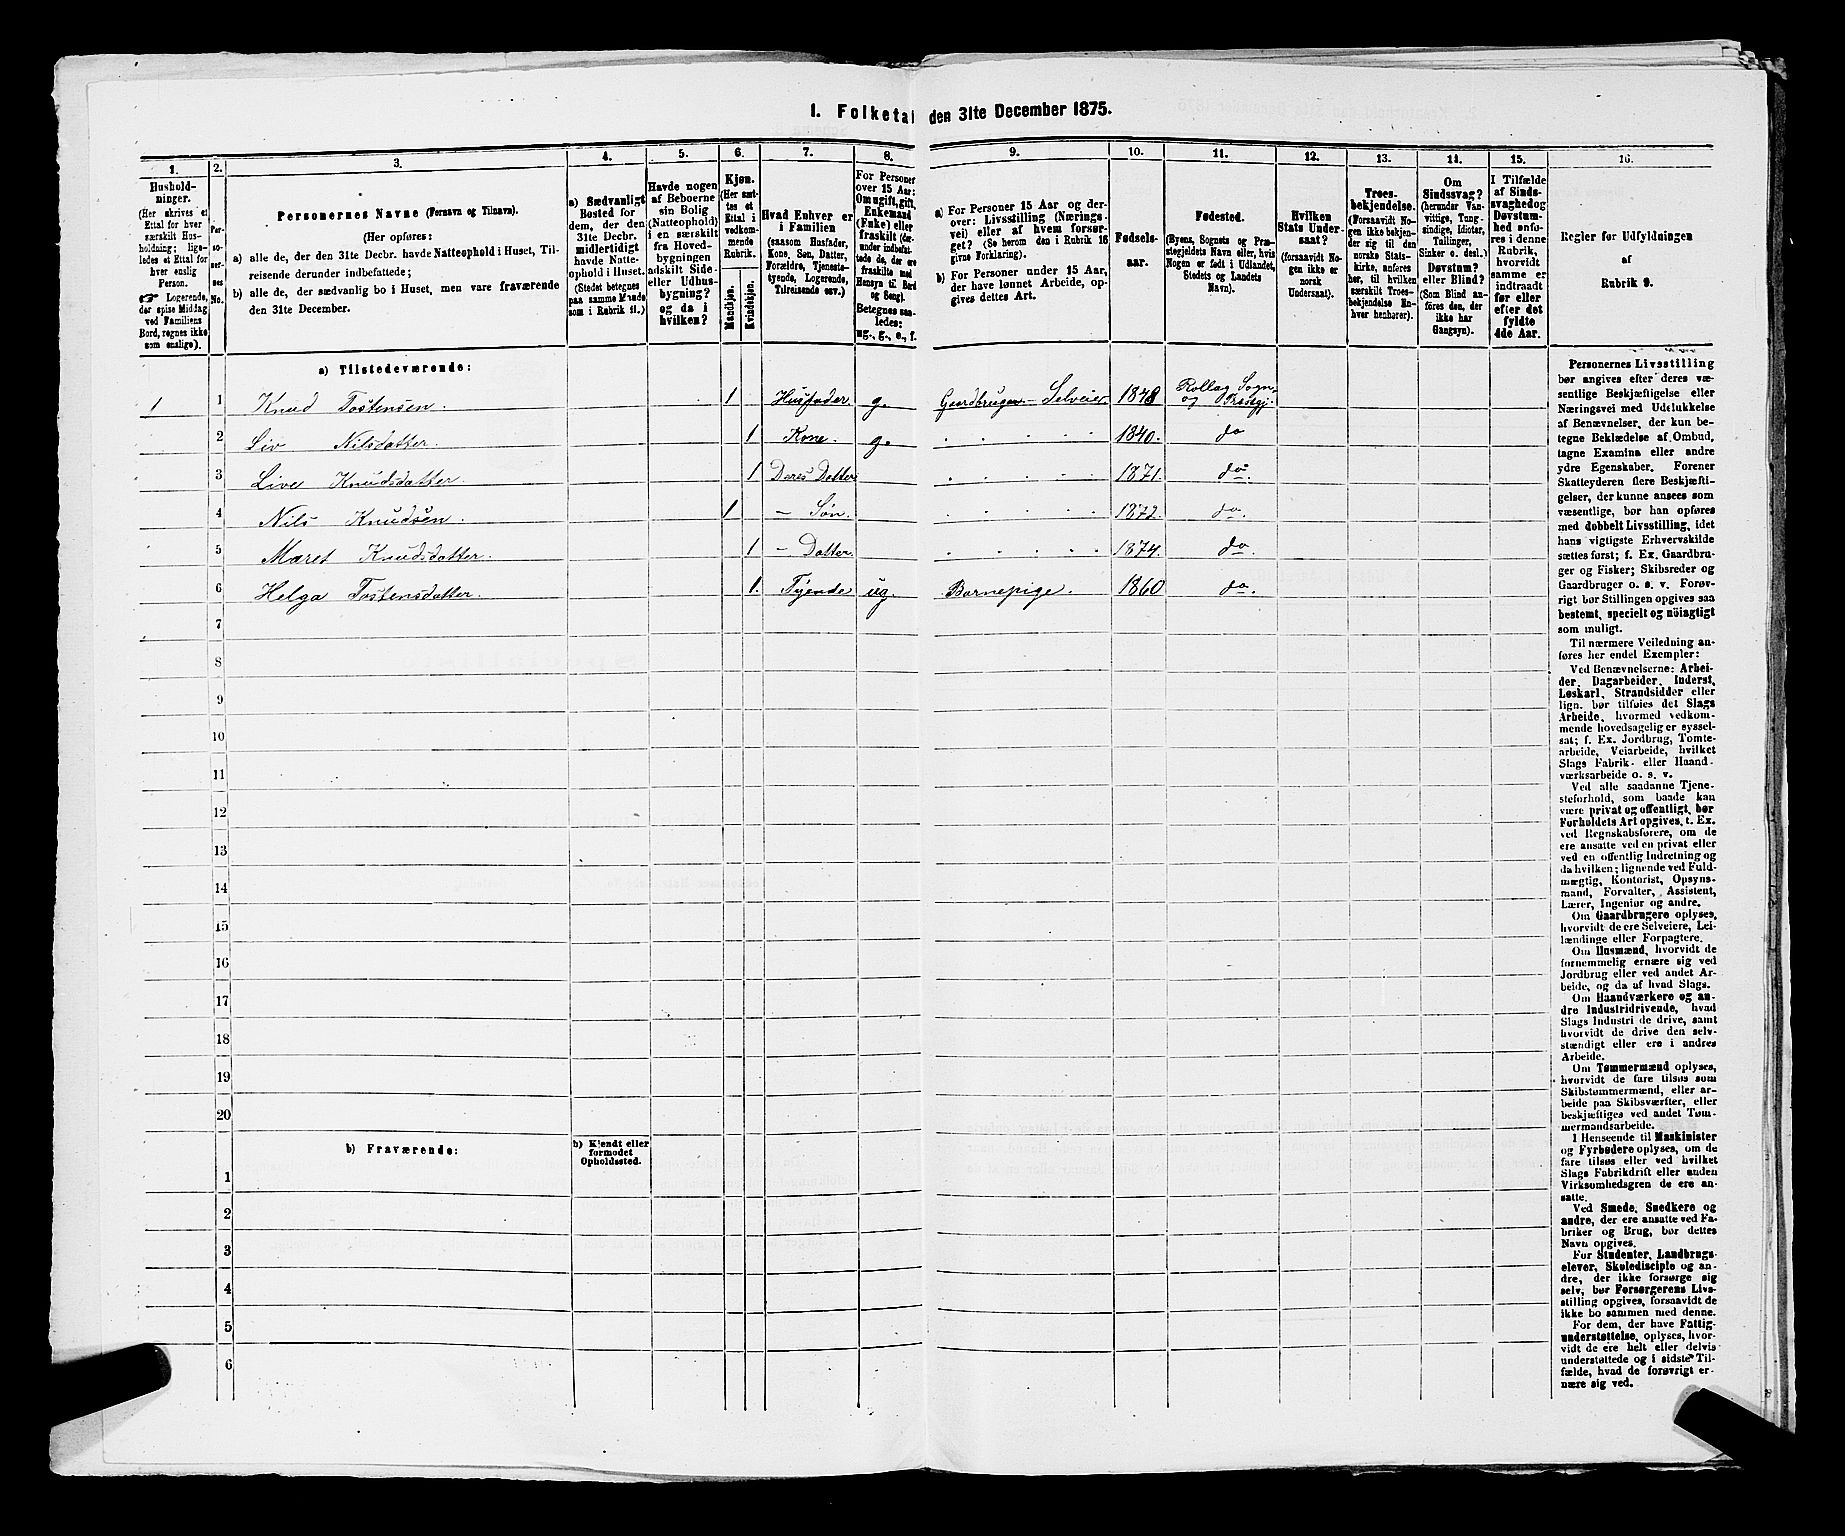 I. Folketal den 31te December 1875.
1. 2. 3. 4. 5. 6. 7. 8. 9. 10. 11. 12. 13. 14. 15. 16.
Hushold-
ninger.
(Her skrives et
Ettal for hver
særskilt Hus-
holdning; lige-
ledes et Ettal for
hver enslig
Person.
☞ Logerende,
der spise Middag
ved Familiens
Bord, regnes ikke
som enslige).
Per-
so-
ner-
nes
No.
Personernes Navne (Fornavn og Tilnavn).
(Her opføres:
a) alle de, der den 31te Decbr. havde Natteophold i Huset, Til-
reisende derunder indbefattede;
b) alle de, der sædvanlig bo i Huset, men vare fraværende
den 31te December.
a) Sædvanligt
Bosted for
dem, der den
31te Decbr.
midlertidigt
havde Natte-
ophold i Huset.
(Stedet betegnes
paa samme Maade
som i Rubrik 11.)
Havde nogen
af Beboerne
sin Bolig
(Natteophold)
i en særskilt
fra Hoved-
bygningen
adskilt Side-
eller Udhus-
bygning?
og da i
hvilken?
Kjøn.
(Her sæt-
tes et
Ettal i
vedkom-
mende
Rubrik.
Mandkjøn.
Kvindekjøn.
Hvad Enhver er
i Familien
(saasom Husfader,
Kone, Søn, Datter,
Forældre, Tjeneste-
tyende, Logerende,
Tilreisende osv.)
For Personer
over 15 Aar:
Om ugift, gift,
Enkemand
(Enke) eller
fraskilt (der-
under indbefat-
tede de, der ere
fraskilte med
Hensyn til Bord
og Seng).
Betegnes saa-
ledes:
ug., g., e., f.
a) For Personer 15 Aar og der-
over: Livsstilling (Nærings-
vei) eller af hvem forsør-
get? (Se herom den i Rubrik 16
givne Forklaring).
b) For Personer under 15 Aar,
der have lønnet Arbeide, op-
gives dettes Art.
Fødsels-
aar.
Fødested.
(Byens, Sognets og Præ-
stegjeldets Navn eller, hvis
Nogen er født i Udlandet,
Stedets og Landets
Navn).
Hvilken
Stats Under-
saat?
(forsaavidt No-
gen ikke er
norsk
Undersaat).
Troes-
bekjendelse.
(Forsaavidt No-
gen ikke bekjen-
der sig til den
norske Stats-
kirke, anføres
her, til hvilken
særskilt Troes-
bekjendelse En-
hver henhører).
Om
Sindssvag?
(herunder Van-
vittige, Tung-
sindige, Idioter,
Tullinger,
Sinker o. desl.)
Døvstum?
eller Blind?
(Som Blind an-
føres den, der
ikke har
Gangsyn).
I Tilfælde
af Sinds-
svaghed og
Døvstum-
hed anfø-
res i denne
Rubrik,
hvorvidt
samme er
indtraadt
før eller
efter det
fyldte
4de Aar.
Regler for Udfyldningen
af
Rubrik 9.
a) Tilstedeværende:
1 1 Knud Tostensen. 1 Husfader. g. Gaardbruger – Selveier 1848 Rollag Sogn
og Præstegj.
2 Liv Nilsdatter. 1 Kone. g. 1840. do
3 Live Knudsdatter. 1 Deres Datter 1871. do.
4 Nils Knudsen. 1 – Søn. 1872. do.
5 Maret Knudsdatter. 1 – Datter. 1874. do.
6 Helga Tostensdatter. 1. Tyende ug. Barnepige. 1860 do.
7
8
9
10
11
12
13
14
15
16
17
18
19
20
b) Fraværende:
b) Kjendt eller
formodet
Opholdssted.
1
2
3
4
5
6
Personernes Livsstilling
bør angives efter deres væ-
sentlige Beskjæftigelse eller
Næringsvei med Udelukkelse
af Benævnelser, der kun be-
tegne Beklædelse af Ombud,
tagne Examina eller andre
ydre Egenskaber. Forener
Skatteyderen flere Beskjæfti-
gelser, der kunne ansees som
væsentlige, bør han opføres
med dobbelt Livsstilling, idet
hans vigtigste Erhvervskilde
sættes først; f. Ex. Gaardbru-
ger og Fisker; Skibsreder og
Gaardbruger o. s. v. Forøv-
rigt bør Stillingen opgives saa
bestemt, specielt og nöiagtigt
som muligt.
Til nærmere Veiledning an-
føres her endel Exempler:
Ved Benævnelserne: Arbei-
der, Dagarbeider, Inderst,
Løskarl, Strandsidder eller
lign. bør tilføies det Slags
Arbeide, hvormed vedkom-
mende hovedsagelig er syssel-
sat; f. Ex. Jordbrug, Tomte-
arbeide, Veiarbeide, hvilket
Slags Fabrik- eller Haand-
værksarbeide o. s. v.
Ved alle saadanne Tjene-
steforhold, som baade kan
være privat og offentligt, bør
Forholdets Art opgives, t. Ex.
ved Regnskabsførere, om de
ere ansatte ved en privat eller
ved en offentlig Indretning og
da hvilken; lignende ved Fuld-
mægtig, Kontorist, Opsyns-
mand, Forvalter, Assistent,
Lærer, Ingeniør og andre.
Om Gaardbrugere oplyses,
hvorvidt de ere Selveiere, Lei-
lændinge eller Forpagtere.
Om Husmænd, hvorvidt de
fornemmelig ernære sig ved
Jordbrug eller ved andet Ar-
beide, og da af hvad Slags.
Om Haandværkere og an-
dre Industridrivende, hvad
Slags Industri de drive, samt
hvorvidt de drive den selv-
stændigt eller ere i andres
Arbeide.
Om Tømmermænd oplyses,
hvorvidt de fare tilsøs som
Skibstømmermænd, eller ar-
beide paa Skibsværfter, eller
beskjæftiges ved andet Tøm-
mermandsarbeide.
I Henseende til Maskinister
og Fyrbødere oplyses, om de
fare tilsøs eller ved hvilket
Slags Fabrikdrift eller anden
Virksomhedsgren de ere an-
satte.
Ved Smede, Snedkere og
andre, der ere ansatte ved Fa-
briker og Brug, bør dettes
Navn opgives.
For Studenter, Landbrugs-
elever, Skoledisciple og an-
dre, der ikke forsørge sig
selv, bør Forsørgerens Livs-
stilling opgives, forsaavidt de
ikke bo sammen med denne.
For dem, der have Fattig-
understøttelse, oplyses, hvor-
vidt de ere helt eller delvis
understøttede og i sidste Til-
fælde, hvad de forøvrigt er-
nære sig ved.